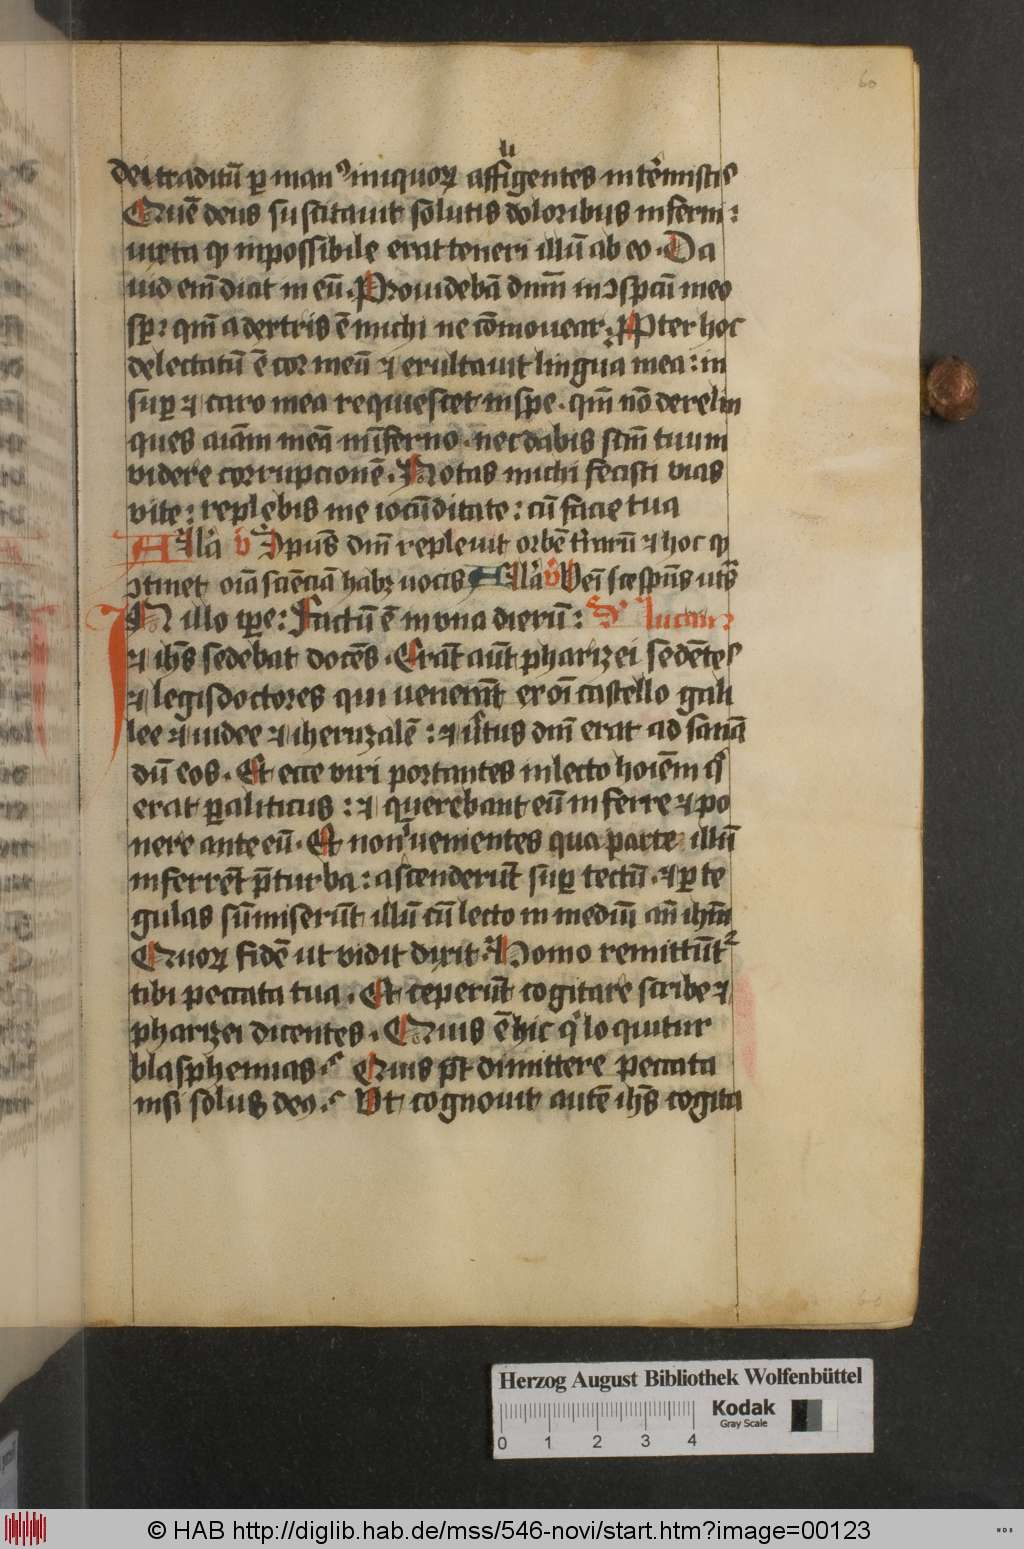 60
dei traditū ꝑ manꝰ iniquoꝝ affligentes intēmistis
Quē deus suscitauit solutis doloribus inferni:
iuxta ꝙ inpossibile erat teneri illū ab eo. Da
uid em̄ dicit in eū. Prouidebā dn̄m in ↄspcū meo
sꝑ: qm̄ a dextris ē michi ne cōmouear. Ꝓpter hoc
delectatū ē cor meū ⁊ exultauit lingua mea: in
suꝑ ⁊ caro mea requiescet in spe. qm̄ nō derelin
ques aiām meā in īferno. nec dabis scm̄ tuum
videre corrupcionē. Notas michi fecisti vias
vite: replebis me iocūditate: cū facie tua
All'a v Spūs dn̄i repleuit orbē t'rarū ⁊ hoc ꝙ
ↄtinet oīa sciēciā habꝫ uocis All'a v Veni sc̄e spūs
IN illo tꝑe: Factū ē in vna dierū: S' lucam
⁊ ihs̄ sedebat docēs. Erāt aūt pharizei sedētes
⁊ legisdoctores qui venerāt ex oī castello gali
lee ⁊ iudee ⁊ iheruzalē: ⁊ u'tus dn̄i erat ad sanā
dū eos. Et ecce viri portantes in lecto hoīem q'
erat ꝑaliticus: ⁊ querebant eū inferre ⁊ po
nere ante eū. Et non inuenientes qua parte illū
inferrēt p̄ turba: ascenderūt suꝑ tectū. ⁊ ꝑ te
gulas sūmiserūt illū cū lecto in mediū an̄ ihm̄
Quoꝝ fidē ut vidit dixit. Homo remittūt᷑
tibi peccata tua. Et ceperūt cogitare scribe ⁊
pharizei dicentes. Quis ē hic q' loquitur
blasphemias. Quis pt̄ dimittere peccata
nisi solus deꝰ. Vt cognouit autē ihs̄ cogita
60
Herzog August Bibliothek Wolfenbüttel
Kodak
Gray Scale
0 1 2 3 4
© HAB http://diglib.hab.de/mss/546-novi/start.htm?image=00123